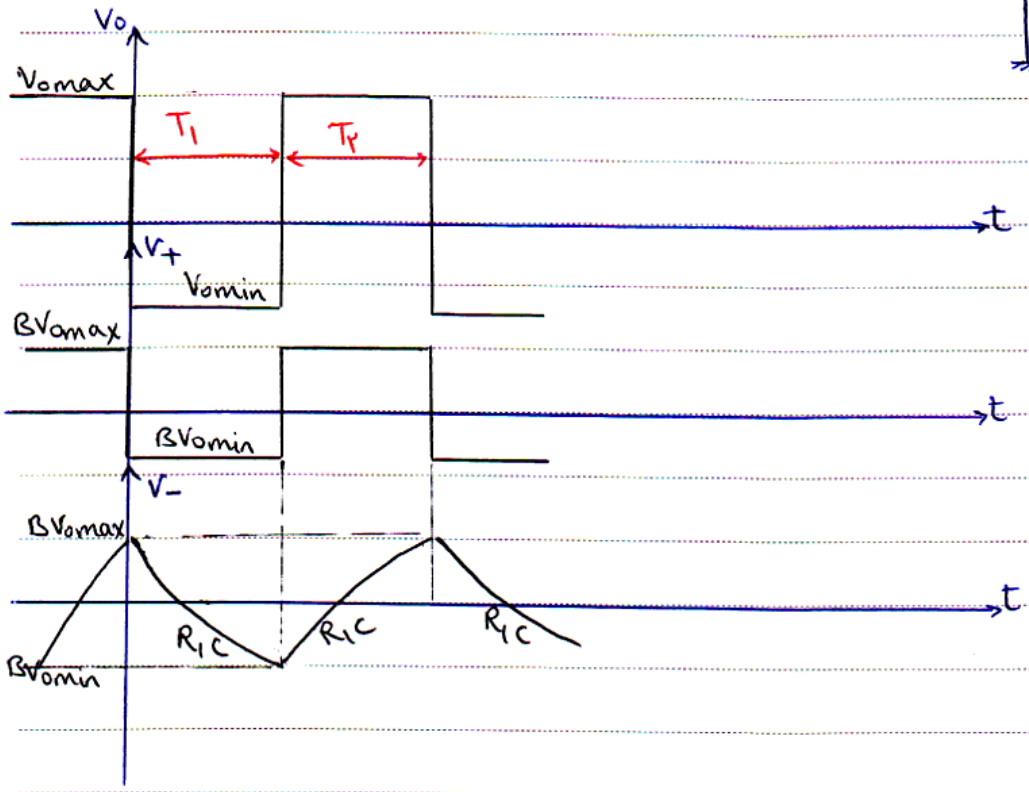 Vo
Vomax
T1
T۲
t
V+
Vomin
BVomax
t
BVomin
V-
BVomax
t
R1C
R1C
R1C
BVomin